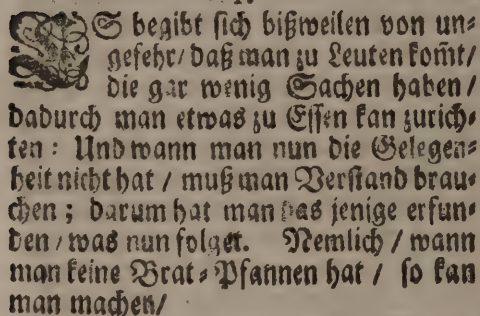 ES begibt sich bißweilen von un⸗
gefehr / daß man zu Leuten kom̃t /
die gar wenig Sachen haben /
dadurch man etwas zu Essen kan zurich⸗
ten : Und wann man nun die Gelegen⸗
heit nicht hat / muß man Verstand brau⸗
chen ; darum hat man das jenige erfun⸗
den / was nun folget. Nemlich / wann
man keine Brat⸗Pfannen hat / so kan
man machen /